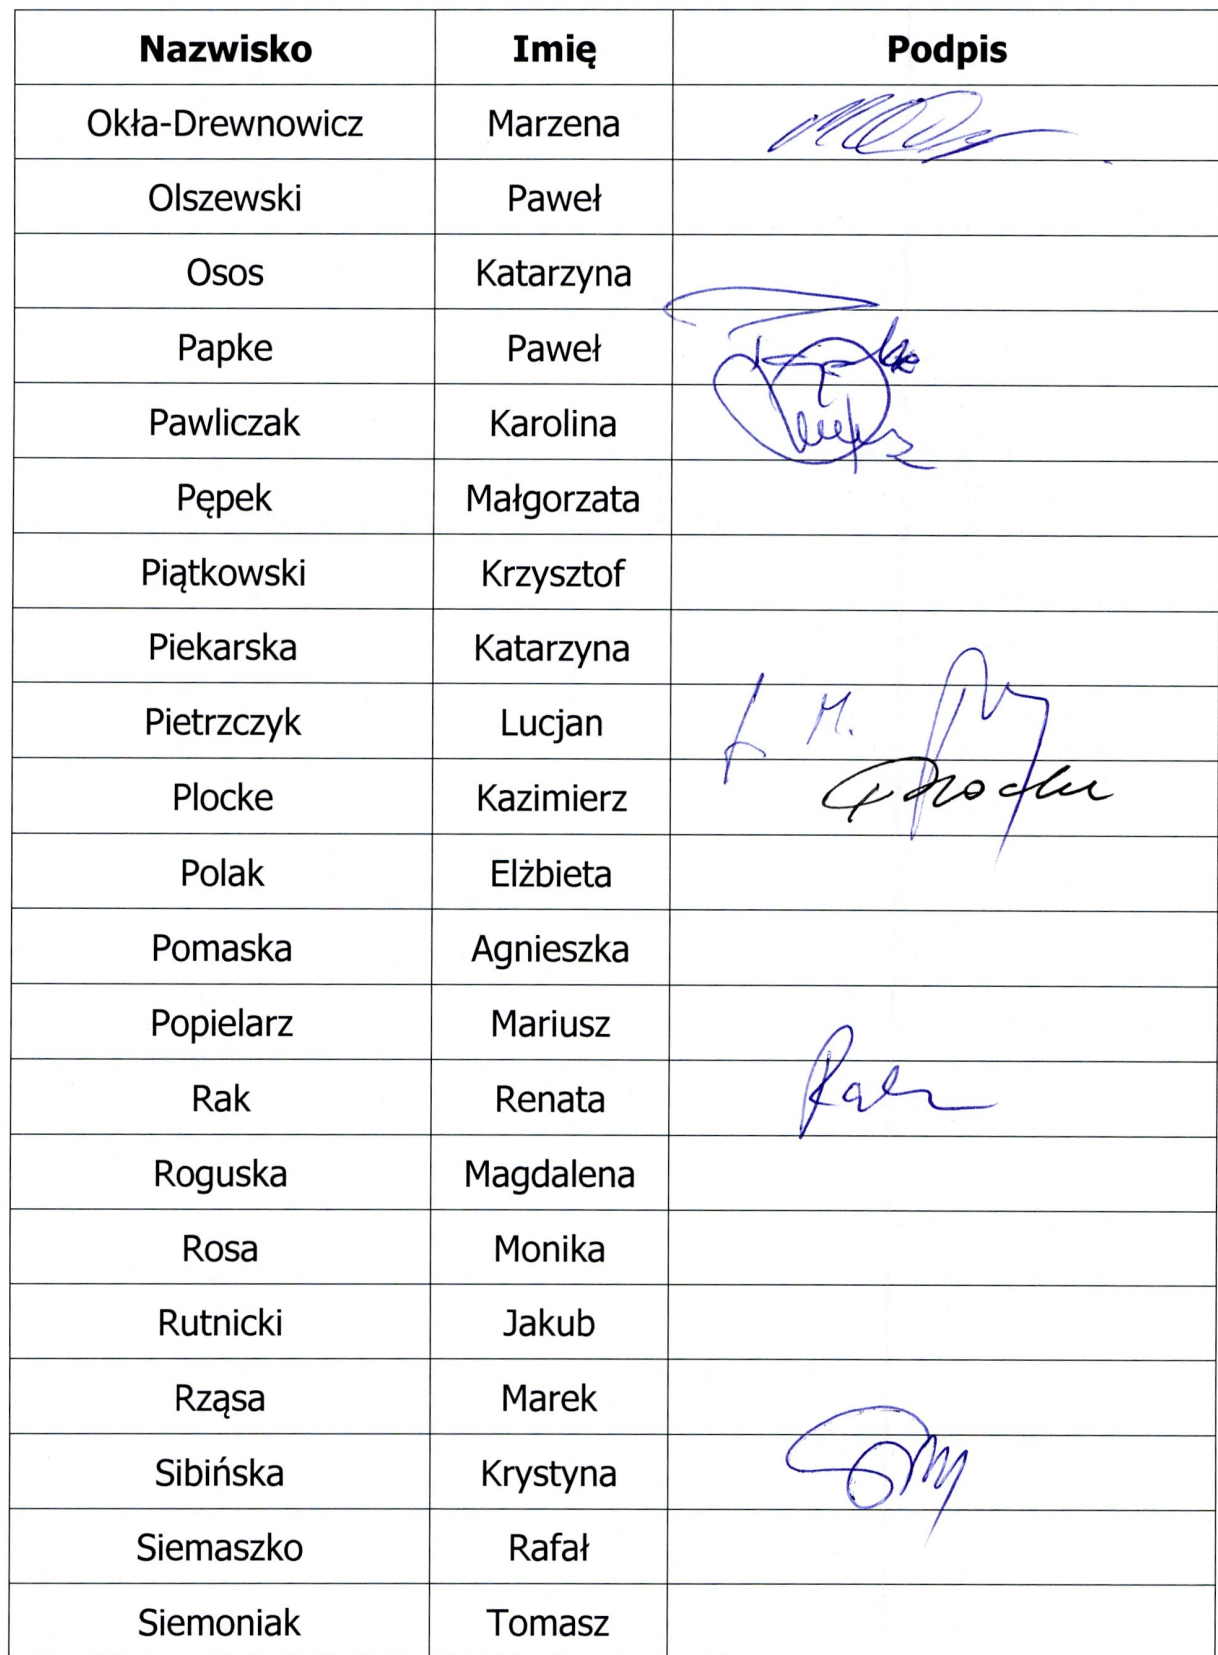 Nazwisko Imię Podpis
Okła-Drewnowicz Marzena
Olszewski Paweł
Osos Katarzyna
Papke Paweł
Pawliczak Karolina
Pępek Małgorzata
Piątkowski Krzysztof
Piekarska Katarzyna
Pietrzczyk Lucjan
Plocke Kazimierz Plocke
Polak Elżbieta
Pomaska Agnieszka
Popielarz Mariusz
Rak Renata Rak
Roguska Magdalena
Rosa Monika
Rutnicki Jakub
Rząsa Marek
Sibińska Krystyna
Siemaszko Rafał
Siemoniak Tomasz